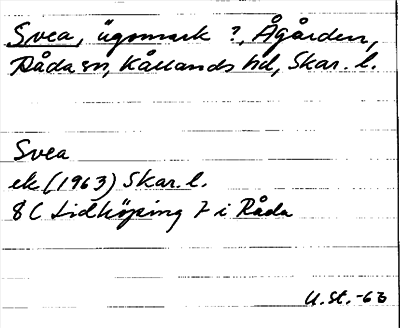 Svea, ägomark ?, Ågården,
Råda sn, Kållands hd, Skar. l.
Svea
ek (1963) Skar. l.
8C Lidköping 7 i Råda
U. St. -63